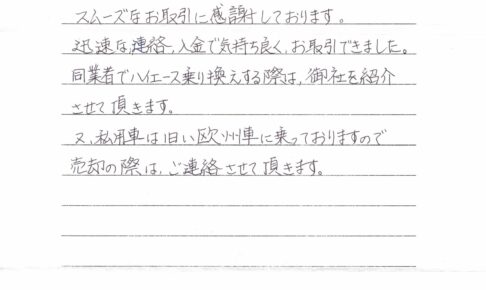 スムーズなお取引に感謝しております。
迅速な連絡、入金で気持ち良く、お取引できました。
同業者でハイエース乗り換えする際は、御社を紹介
させて頂きます。
又、私用車は旧い欧州車に乗っておりますので
売却の際は、ご連絡させて頂きます。